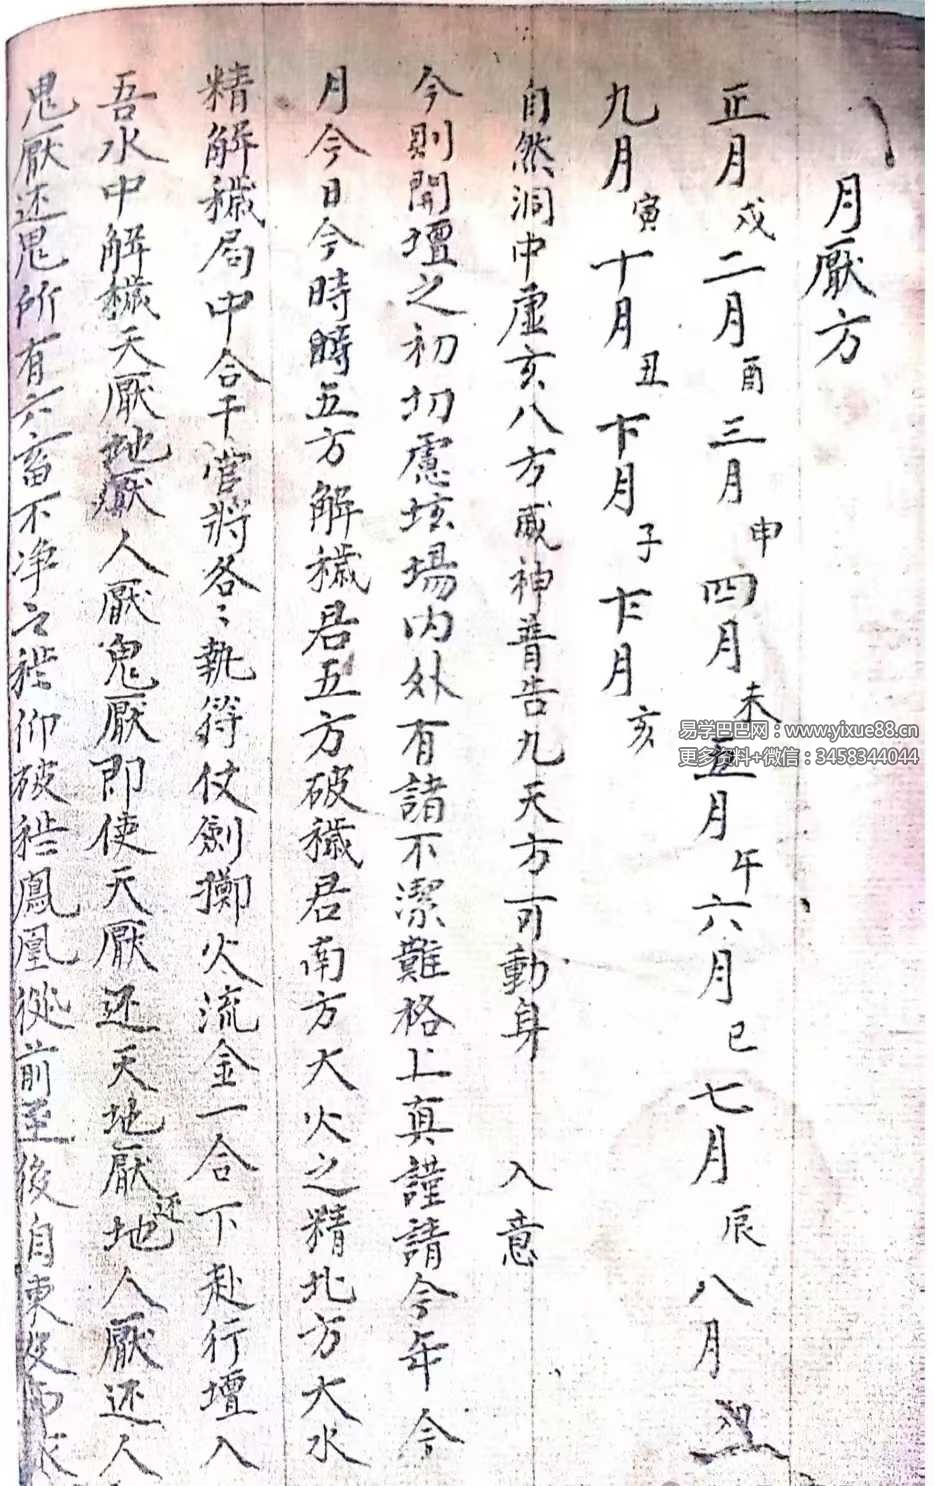 月厭方
正月戌二月酉三月申四月未五月午六月巳七月辰八月
九月寅十月丑十一月子十二月亥
自然洞中虛玄八方威神普告九天方可動身 入意
今則開壇之初切慮垓場內外有諸不潔難格上真謹請今年今
月今日今時時五方解穢君五方破穢君南方大火之精北方大水
精解穢局中合干官將各〻執符仗劍擲火流金一合下赴行壇入
吾水中解穢天厭地厭人厭鬼厭即使天厭还天地厭还地人厭还人
鬼厭还鬼所有六畜不净之秽仰破秽鳳凰從前至後自東
易学巴巴网：www.yixue88.cn
更多资料+微信：3458344044